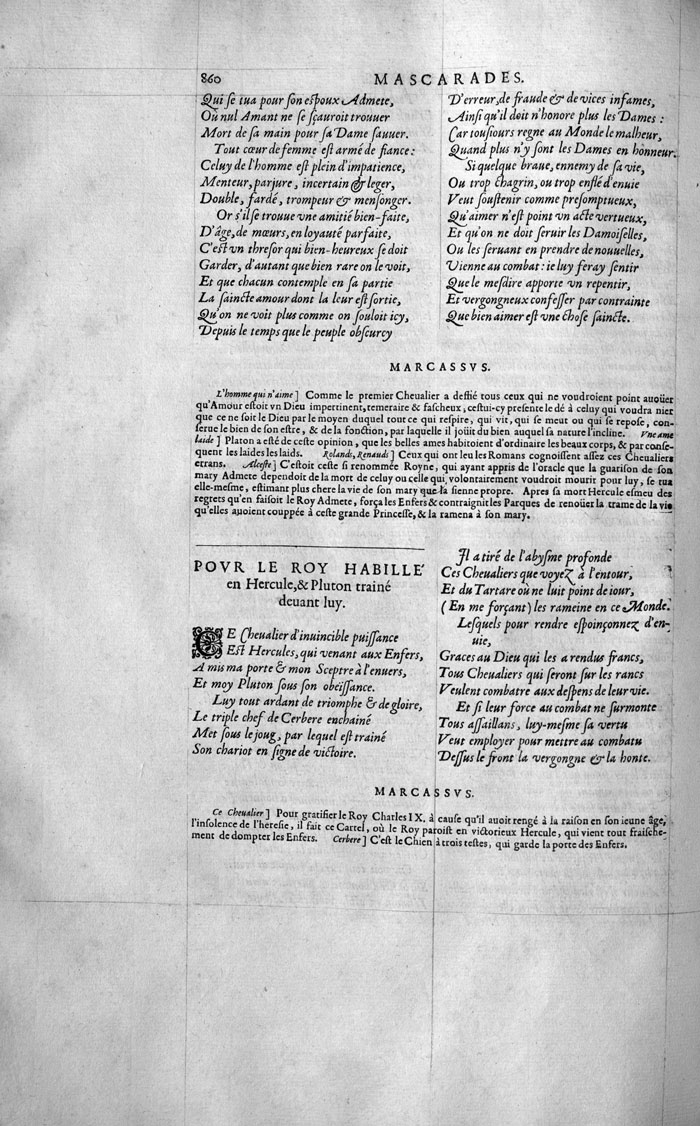 860
MASCARADES.
Qui se tua pour son espoux Admete,
Où nul Amant ne se sçauroit trouuer
Mort de sa main pour sa Dame sauuer.
Tout cœur de femme est armé de fiance:
Celuy de l'homme est plein d'impatience,
Menteur, parjure, incertain & leger,
Double, fardé, trompeur & mensonger.
Or s'il se trouue vne amitié bien-faite,
D'âge, de mœurs, en loyauté parfaite,
C'est vn thresor qui bien-heureux se doit
Garder, d'autant que bien rare on le voit,
Et que chacun contemple en sa partie
La saincte amour dont la leur est sortie,
Qu'on ne voit plus comme on souloit icy,
Depuis le temps que le peuple obscurcy
D'erreur, de fraude & de vices infames,
Ainsi qu'il doit n'honore plus les Dames:
Car tousiours regne au Monde le malheur,
Quand plus n'y sont les Dames en honneur.
Si quelque braue, ennemy de sa vie,
Ou trop chagrin, ou trop enflé d'enuie
Veut soustenir comme presomptueux,
Qu'aimer n'est point vn acte vertueux,
Et qu'on ne doit seruir les Damoiselles,
Ou les seruant en prendre de nouuelles,
Vienne au combat: ie luy feray sentir
Que le mesdire apporte vn repentir,
Et vergongneux confesser par contrainte
Que bien aimer est vne chose saincte.
MARCASSVS.
L'homme qui n'aime] Comme le premier Cheualier a deffié tous ceux qui ne voudroient point auoüer
qu'Amour estoit vn Dieu impertinent, temeraire & fascheux, cestui-cy presente le dé à celuy qui voudra nier
que ce ne soit le Dieu par le moyen duquel tout ce qui respire, qui vit, qui se meut ou qui se repose, con-
serue le bien de son estre, & de la fonction, par laquelle il joüit du bien auquel sa nature l'incline. Vne ame
laide] Platon a esté de ceste opinion, que les belles ames habitoient d'ordinaire les beaux corps, & par conse-
quent les laides les laids. Rolands, Renauds] Ceux qui ont leu les Romans cognoissent assez ces Cheualiers
errans. Alceste] C'estoit ceste si renommée Royne, qui ayant appris de l'oracle que la guarison de son
mary Admete dependoit de la mort de celuy ou celle qui volontairement voudroit mourir pour luy, se tua
elle-mesme, estimant plus chere la vie de son mary que la sienne propre. Apres sa mort Hercule esmeu des
regrets qu'en faisoit le Roy Admete, força les Enfers & contraignit les Parques de renoüer la trame de la vie
qu'elles auoient couppée à ceste grande Princesse, & la ramena à son mary.
POVR LE ROY HABILLÉ
en Hercule, & Pluton trainé
deuant luy.
CE Cheualier d'inuincible puissance
Est Hercules, qui venant aux Enfers,
A mis ma porte & mon Sceptre à l'enuers,
Et moy Pluton sous son obeïssance.
Luy tout ardant de triomphe & de gloire,
Le triple chef de Cerbere enchainé
Met sous le joug, par lequel est trainé
Son chariot en signe de victoire.
Il a tiré de l'abysme profonde
Ces Cheualiers que voyez à l'entour,
Et du Tartare où ne luit point de iour,
(En me forçant) les rameine en ce Monde.
Lesquels pour rendre espoinçonnez d'en-
uie,
Graces au Dieu qui les a rendus francs,
Tous Cheualiers qui seront sur les rancs
Veulent combatre aux despens de leur vie.
Et si leur force au combat ne surmonte
Tous assaillans, luy-mesme sa vertu
Veut employer pour mettre au combatu
Dessus le front la vergongne & la honte.
MARCASSVS.
Ce Cheualier] Pour gratifier le Roy Charles IX. à cause qu'il auoit rengé à la raison en son ieune âge,
l'insolence de l'heresie, il fait ce Cartel, où le Roy paroist en victorieux Hercule, qui vient tout fraische-
ment de dompter les Enfers. Cerbere] C'est le Chien à trois testes, qui garde la porte des Enfers.